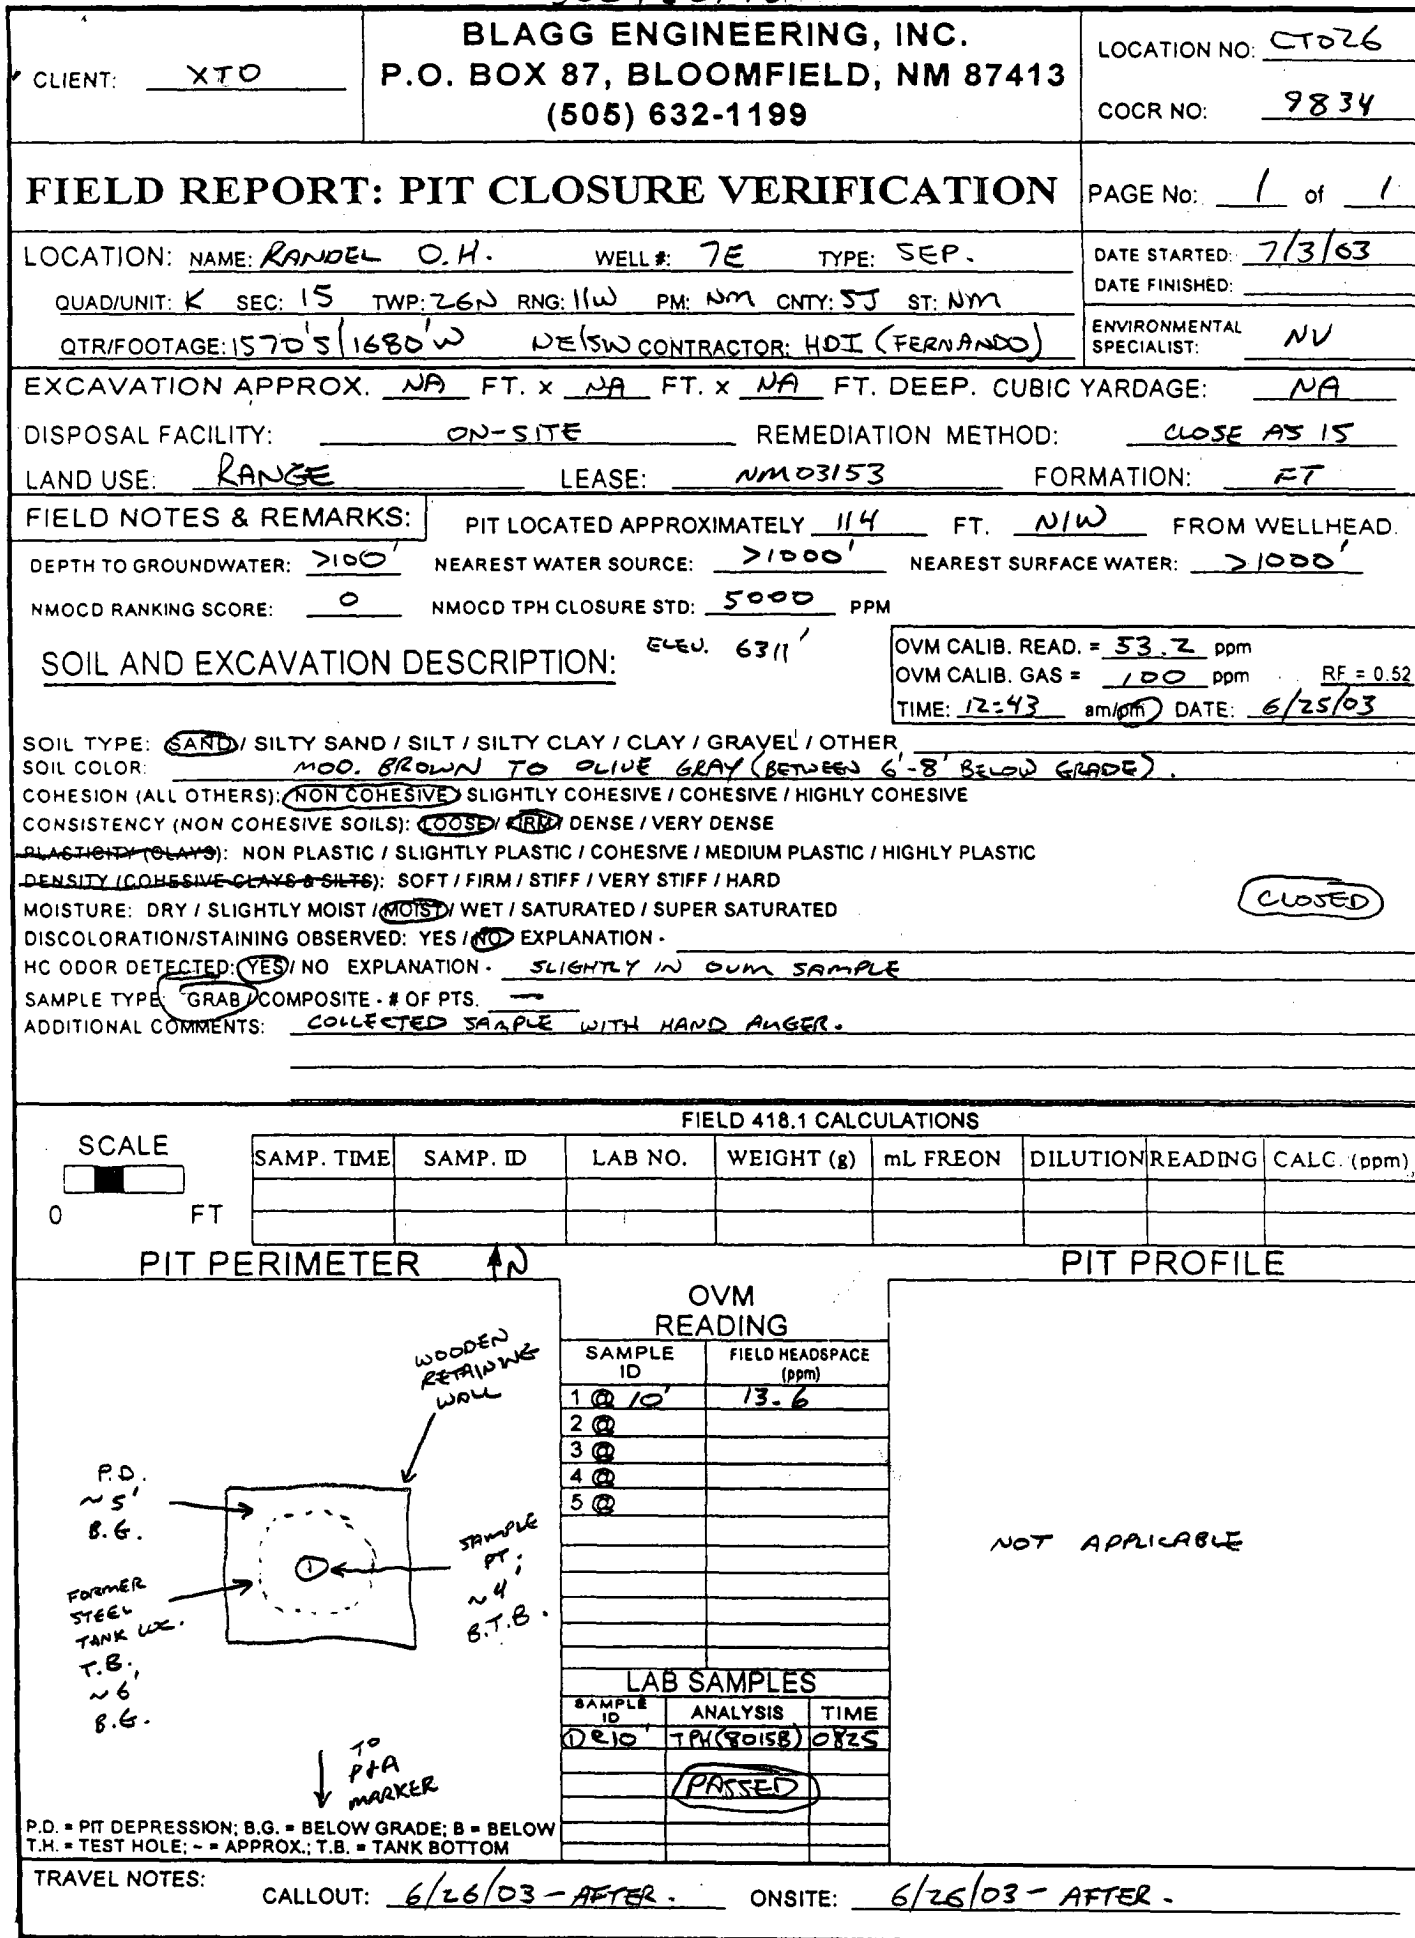 BLAGG ENGINEERING, INC.
P.O. BOX 87, BLOOMFIELD, NM 87413
(505) 632-1199
CLIENT: XTO
LOCATION NO: CT026
COCR NO: 9834
FIELD REPORT: PIT CLOSURE VERIFICATION
PAGE No: 1 of 1
LOCATION: NAME: RANDEL O.H. WELL #: 7E TYPE: SEP.
QUAD/UNIT: K SEC: 15 TWP: 26N RNG: 11W PM: NM CNTY: SJ ST: NM
QTR/FOOTAGE: 1570'S/1680'W NE/SW CONTRACTOR: HDI (FERNANDO)
DATE STARTED: 7/3/03
DATE FINISHED:
ENVIRONMENTAL SPECIALIST: NV
EXCAVATION APPROX. NA FT. x NA FT. x NA FT. DEEP. CUBIC YARDAGE: NA
DISPOSAL FACILITY: ON-SITE REMEDIATION METHOD: CLOSE AS IS
LAND USE: RANGE LEASE: NM03153 FORMATION: FT
FIELD NOTES & REMARKS: PIT LOCATED APPROXIMATELY 114 FT. N/W FROM WELLHEAD.
DEPTH TO GROUNDWATER: >100' NEAREST WATER SOURCE: >1000' NEAREST SURFACE WATER: >1000'
NMOCD RANKING SCORE: 0 NMOCD TPH CLOSURE STD: 5000 PPM
SOIL AND EXCAVATION DESCRIPTION: ELEV. 6311'
OVM CALIB. READ. = 53.2 ppm
OVM CALIB. GAS = 100 ppm RF = 0.52
TIME: 12:43 am/pm DATE: 6/25/03
SOIL TYPE: SAND / SILTY SAND / SILT / SILTY CLAY / CLAY / GRAVEL / OTHER
SOIL COLOR: MOD. BROWN TO OLIVE GRAY (BETWEEN 6'-8' BELOW GRADE).
COHESION (ALL OTHERS): NON COHESIVE / SLIGHTLY COHESIVE / COHESIVE / HIGHLY COHESIVE
CONSISTENCY (NON COHESIVE SOILS): LOOSE / FIRM / DENSE / VERY DENSE
PLASTICITY (CLAYS): NON PLASTIC / SLIGHTLY PLASTIC / COHESIVE / MEDIUM PLASTIC / HIGHLY PLASTIC
DENSITY (COHESIVE CLAYS & SILTS): SOFT / FIRM / STIFF / VERY STIFF / HARD
MOISTURE: DRY / SLIGHTLY MOIST / MOIST / WET / SATURATED / SUPER SATURATED
CLOSED
DISCOLORATION/STAINING OBSERVED: YES / NO EXPLANATION -
HC ODOR DETECTED: YES / NO EXPLANATION - SLIGHTLY IN OVM SAMPLE
SAMPLE TYPE: GRAB / COMPOSITE - # OF PTS. —
ADDITIONAL COMMENTS: COLLECTED SAMPLE WITH HAND AUGER.
FIELD 418.1 CALCULATIONS
SCALE
0 FT
SAMP. TIME SAMP. ID LAB NO. WEIGHT (g) mL FREON DILUTION READING CALC. (ppm)
PIT PERIMETER N
PIT PROFILE
OVM
READING
SAMPLE ID FIELD HEADSPACE (ppm)
1 @ 10' 13.6
2 @
3 @
4 @
5 @
WOODEN
RETAINING
WALL
P.D.
~5'
B.G.
SAMPLE
PT;
~4'
B.T.B.
FORMER
STEEL
TANK LOC.
T.B.,
~6'
B.G.
TO
P&A
MARKER
NOT APPLICABLE
LAB SAMPLES
SAMPLE ID ANALYSIS TIME
① @ 10' TPH (8015B) 0825
PASSED
P.D. = PIT DEPRESSION; B.G. = BELOW GRADE; B = BELOW
T.H. = TEST HOLE; ~ = APPROX.; T.B. = TANK BOTTOM
TRAVEL NOTES: CALLOUT: 6/26/03 - AFTER. ONSITE: 6/26/03 - AFTER.